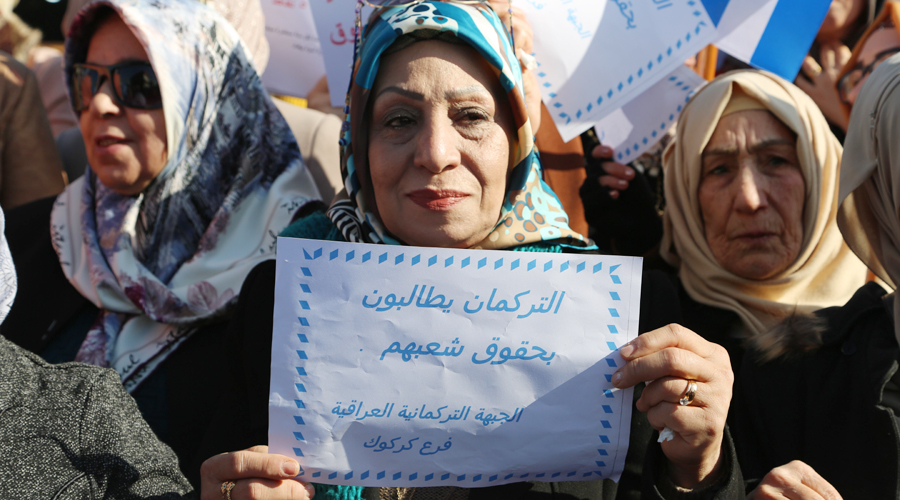 التركمان يطالبون
بحقوق شعبهم
الجبهة التركمانية العراقية
فرع كركوك
بحقوق